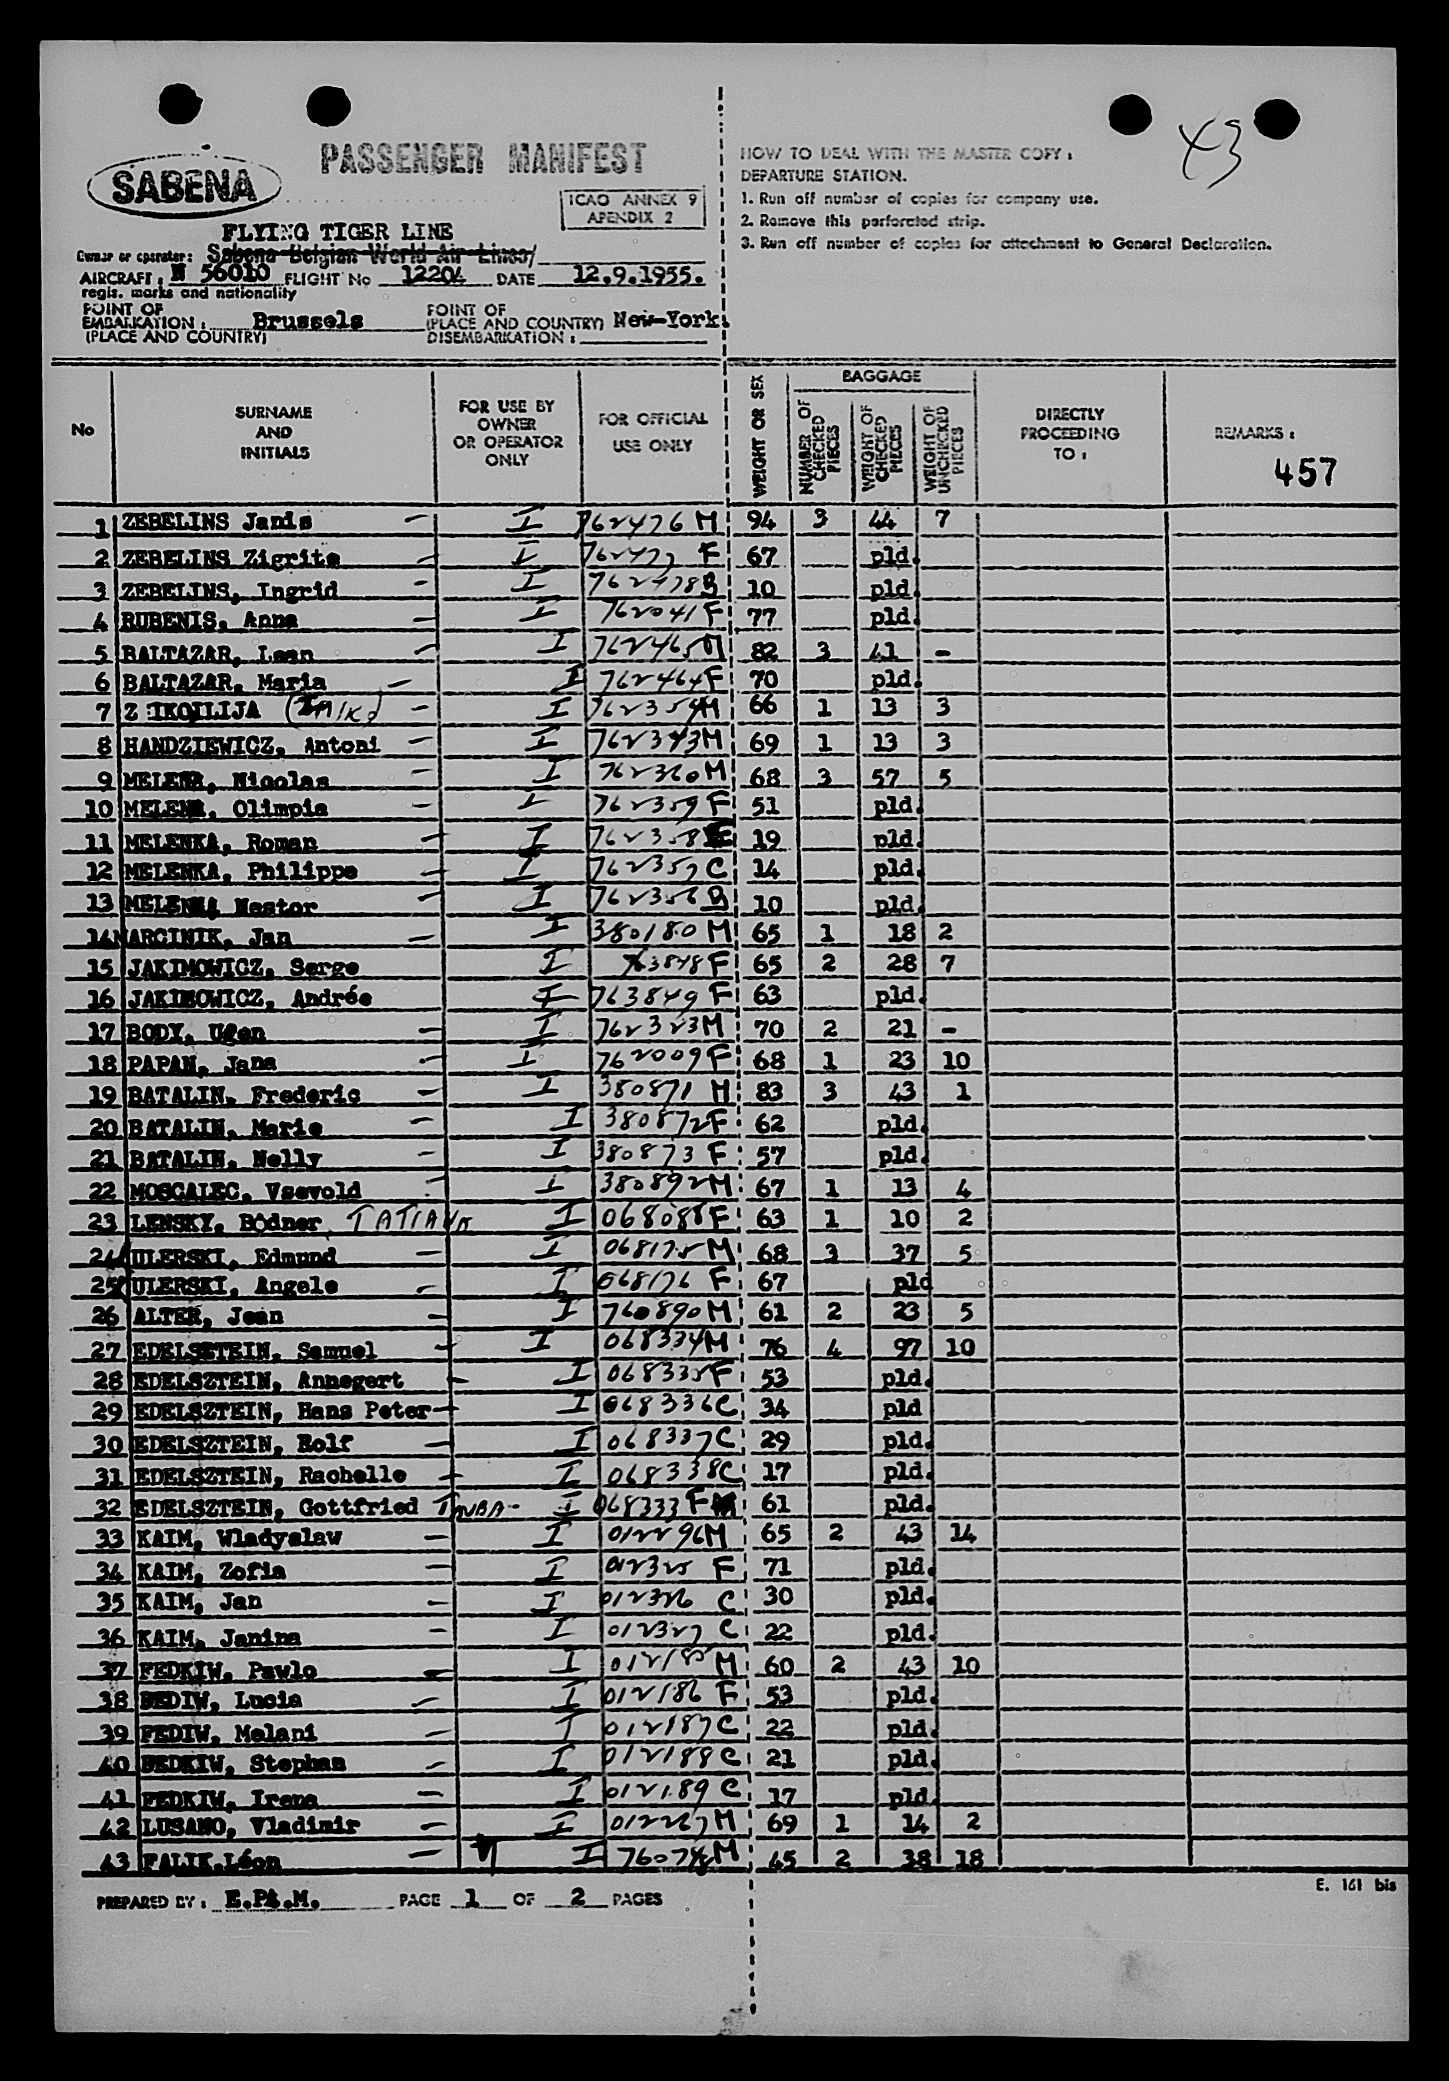 43
SABENA
PASSENGER MANIFEST
ICAO ANNEX 9
APENDIX 2
FLYING TIGER LINE
Owner or operator: Sabena Belgian World Air Lines/
AIRCRAFT: N 56010 FLIGHT No 12204 DATE 12.9.1955.
regis. marks and nationality
POINT OF
EMBARKATION: Brussels
(PLACE AND COUNTRY)
POINT OF
(PLACE AND COUNTRY) New-York.
DISEMBARKATION:
HOW TO DEAL WITH THE MASTER COPY:
DEPARTURE STATION.
1. Run off number of copies for company use.
2. Remove this perforated strip.
3. Run off number of copies for attachment to General Declaration.
No
SURNAME
AND
INITIALS
FOR USE BY
OWNER
OR OPERATOR
ONLY
FOR OFFICIAL
USE ONLY
WEIGHT OR SEX
BAGGAGE
NUMBER OF
CHECKED
PIECES
WEIGHT OF
CHECKED
PIECES
WEIGHT OF
UNCHECKED
PIECES
DIRECTLY
PROCEEDING
TO:
REMARKS:
457
1 ZEBELINS Janis - I 762476 M 94 3 44 7
2 ZEBELINS Zigrite - I 762477 F 67 pld.
3 ZEBELINS, Ingrid - I 762478 B 10 pld.
4 RUBENIS, Anna - I 762041 F 77 pld.
5 BALTAZAR, Lean - I 762465 M 82 3 41 -
6 BALTAZAR, Maria - I 762464 F 70 pld.
7 ILIJA - I 762354 M 66 1 13 3
8 HANDZIEWICZ, Antoni - I 762343 M 69 1 13 3
9 Nicolas - I 762360 M 68 3 57 5
10 Olimpia - I 762359 F 51 pld.
11 MELENKA, Roman - I 762358 19 pld.
12 MELENKA, Philippe - I 762357 C 14 pld.
13 Nestor - I 762356 B 10 pld.
14 MARCINIK, Jan - I 380180 M 65 1 18 2
15 JAKIMOWICZ, Serge I 763848 F 65 2 28 7
16 JAKIMOWICZ, Andrée I 763849 F 63 pld.
17 BODY, Ugen - I 762323 M 70 2 21 -
18 PAPAN, Jana - I 762009 F 68 1 23 10
19 BATALIN, Frederic - I 380871 M 83 3 43 1
20 BATALIN, Marie - I 380872 F 62 pld.
21 BATALIN, Nelly - I 380873 F 57 pld.
22 MOSCALEC, Vsevold - I 380892 M 67 1 13 4
23 LENSKY, Bodner TATIANA I 068088 F 63 1 10 2
24 ULERSKI, Edmund - I 068175 M 68 3 37 5
25 ULERSKI, Angele - I 068176 F 67 pld
26 ALTER, Jean - I 760890 M 61 2 23 5
27 Samuel - I 068334 M 76 4 97 10
28 EDELSZTEIN, Annegert - I 068335 F 53 pld.
29 EDELSZTEIN, Hans Peter - I 068336 C 34 pld
30 EDELSZTEIN, Rolf - I 068337 C 29 pld.
31 EDELSZTEIN, Rachelle - I 068338 C 17 pld.
32 EDELSZTEIN, Gottfried TAUBA - I 068333 F 61 pld.
33 KAIM, Wladyslaw - I 012296 M 65 2 43 14
34 KAIM, Zofia - I 012325 F 71 pld.
35 KAIM, Jan - I 012326 C 30 pld.
36 KAIM, Janina - I 012327 C 22 pld.
37 FEDKIW, Pawlo - I 012185 M 60 2 43 10
38 Lucia - I 012186 F 53 pld.
39 FEDIW, Melani - I 012187 C 22 pld.
40 FEDKIW, Stephan - I 012188 C 21 pld.
41 FEDKIW, Irena - I 012189 C 17 pld.
42 LUSANO, Vladimir - I 012267 M 69 1 14 2
43 FALIK, Léon - I M 45 2 38 18
PREPARED BY: PAGE 1 OF 2 PAGES
E. 161 bis